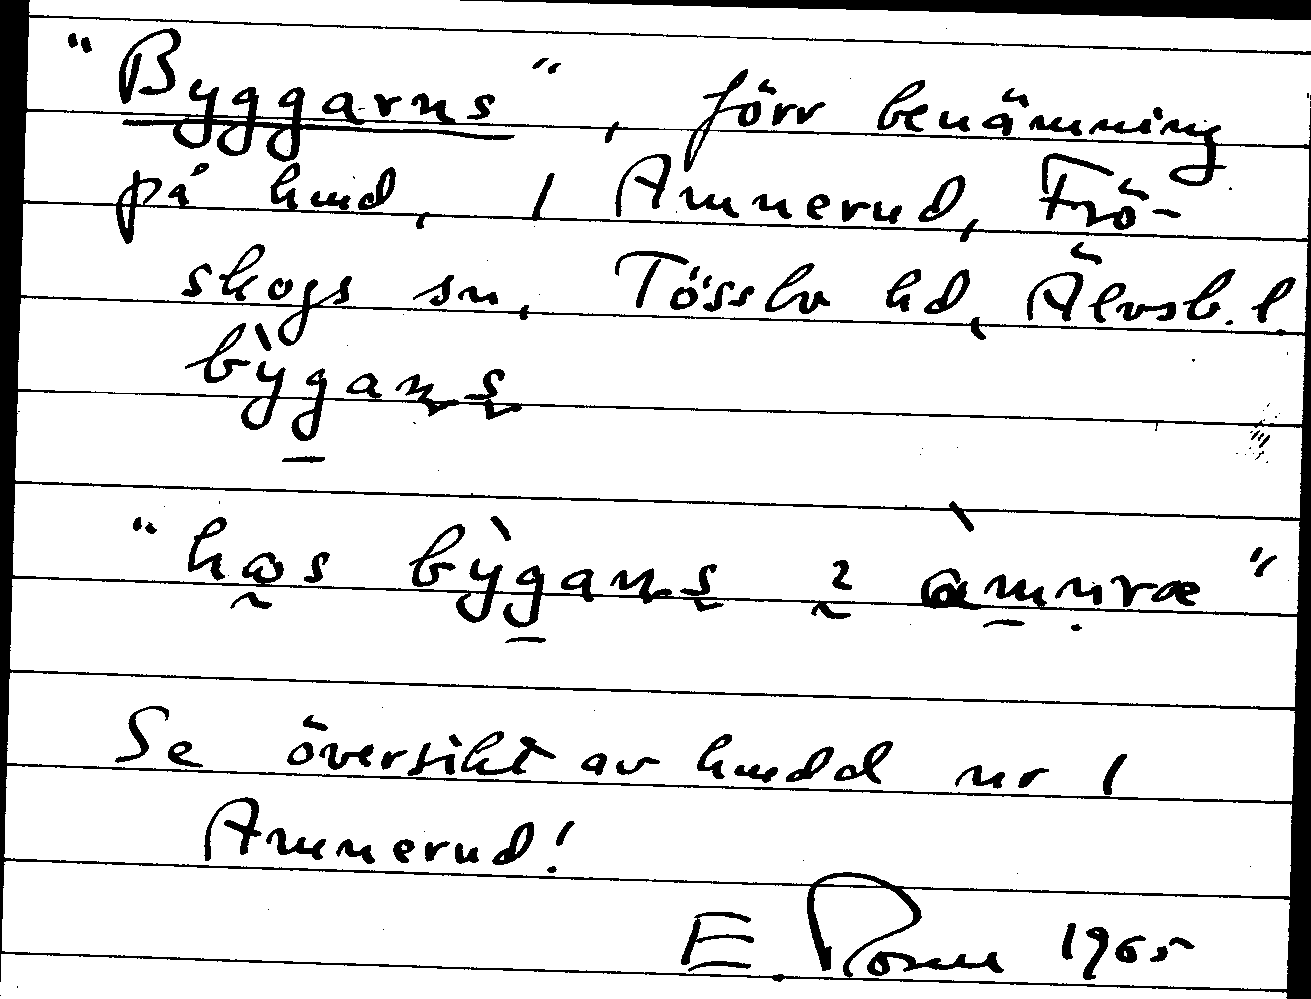 "Byggarns", förr benämning
på hmd, 1 Ammerud, Frö-
skogs sn, Tössbo hd, Älvsb. l.
bỳgan̢s̢
"hos bỳgan̢s ɂ àmnræ"
Se översikt av hmdd nr 1
Ammerud!
E. Rosen 1965